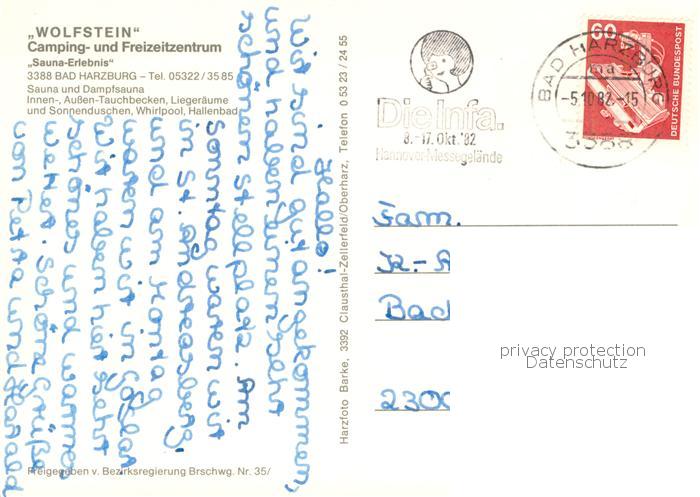 „WOLFSTEIN“
Camping- und Freizeitzentrum
„Sauna-Erlebnis“
3388 BAD HARZBURG – Tel. 05322 / 35 85
Sauna und Dampfsauna
Innen-, Außen-Tauchbecken, Liegeräume
und Sonnenduschen, Whirlpool, Hallenbad
Hallo!
Wir sind gut angekommen,
und haben einen sehr
schönen Stellplatz. Am
Sonntag waren wir
in St. Andreasberg,
und am Montag
waren wir in Goslar
Wir haben hier sehr
schönes und warmes
Wetter. Schöne Grüße
von Petra und Harald
Freigegeben v. Bezirksregierung Brschwg. Nr. 35/
Harzfoto Barke, 3392 Clausthal-Zellerfeld/Oberharz, Telefon 0 53 23 / 24 55
Die Infa.
8.-17. Okt. '82
Hannover-Messegelände
BAD HARZBURG
-5.10.82.-15
3388
60
DEUTSCHE BUNDESPOST
Fam.
Bad
2300
privacy protection
Datenschutz